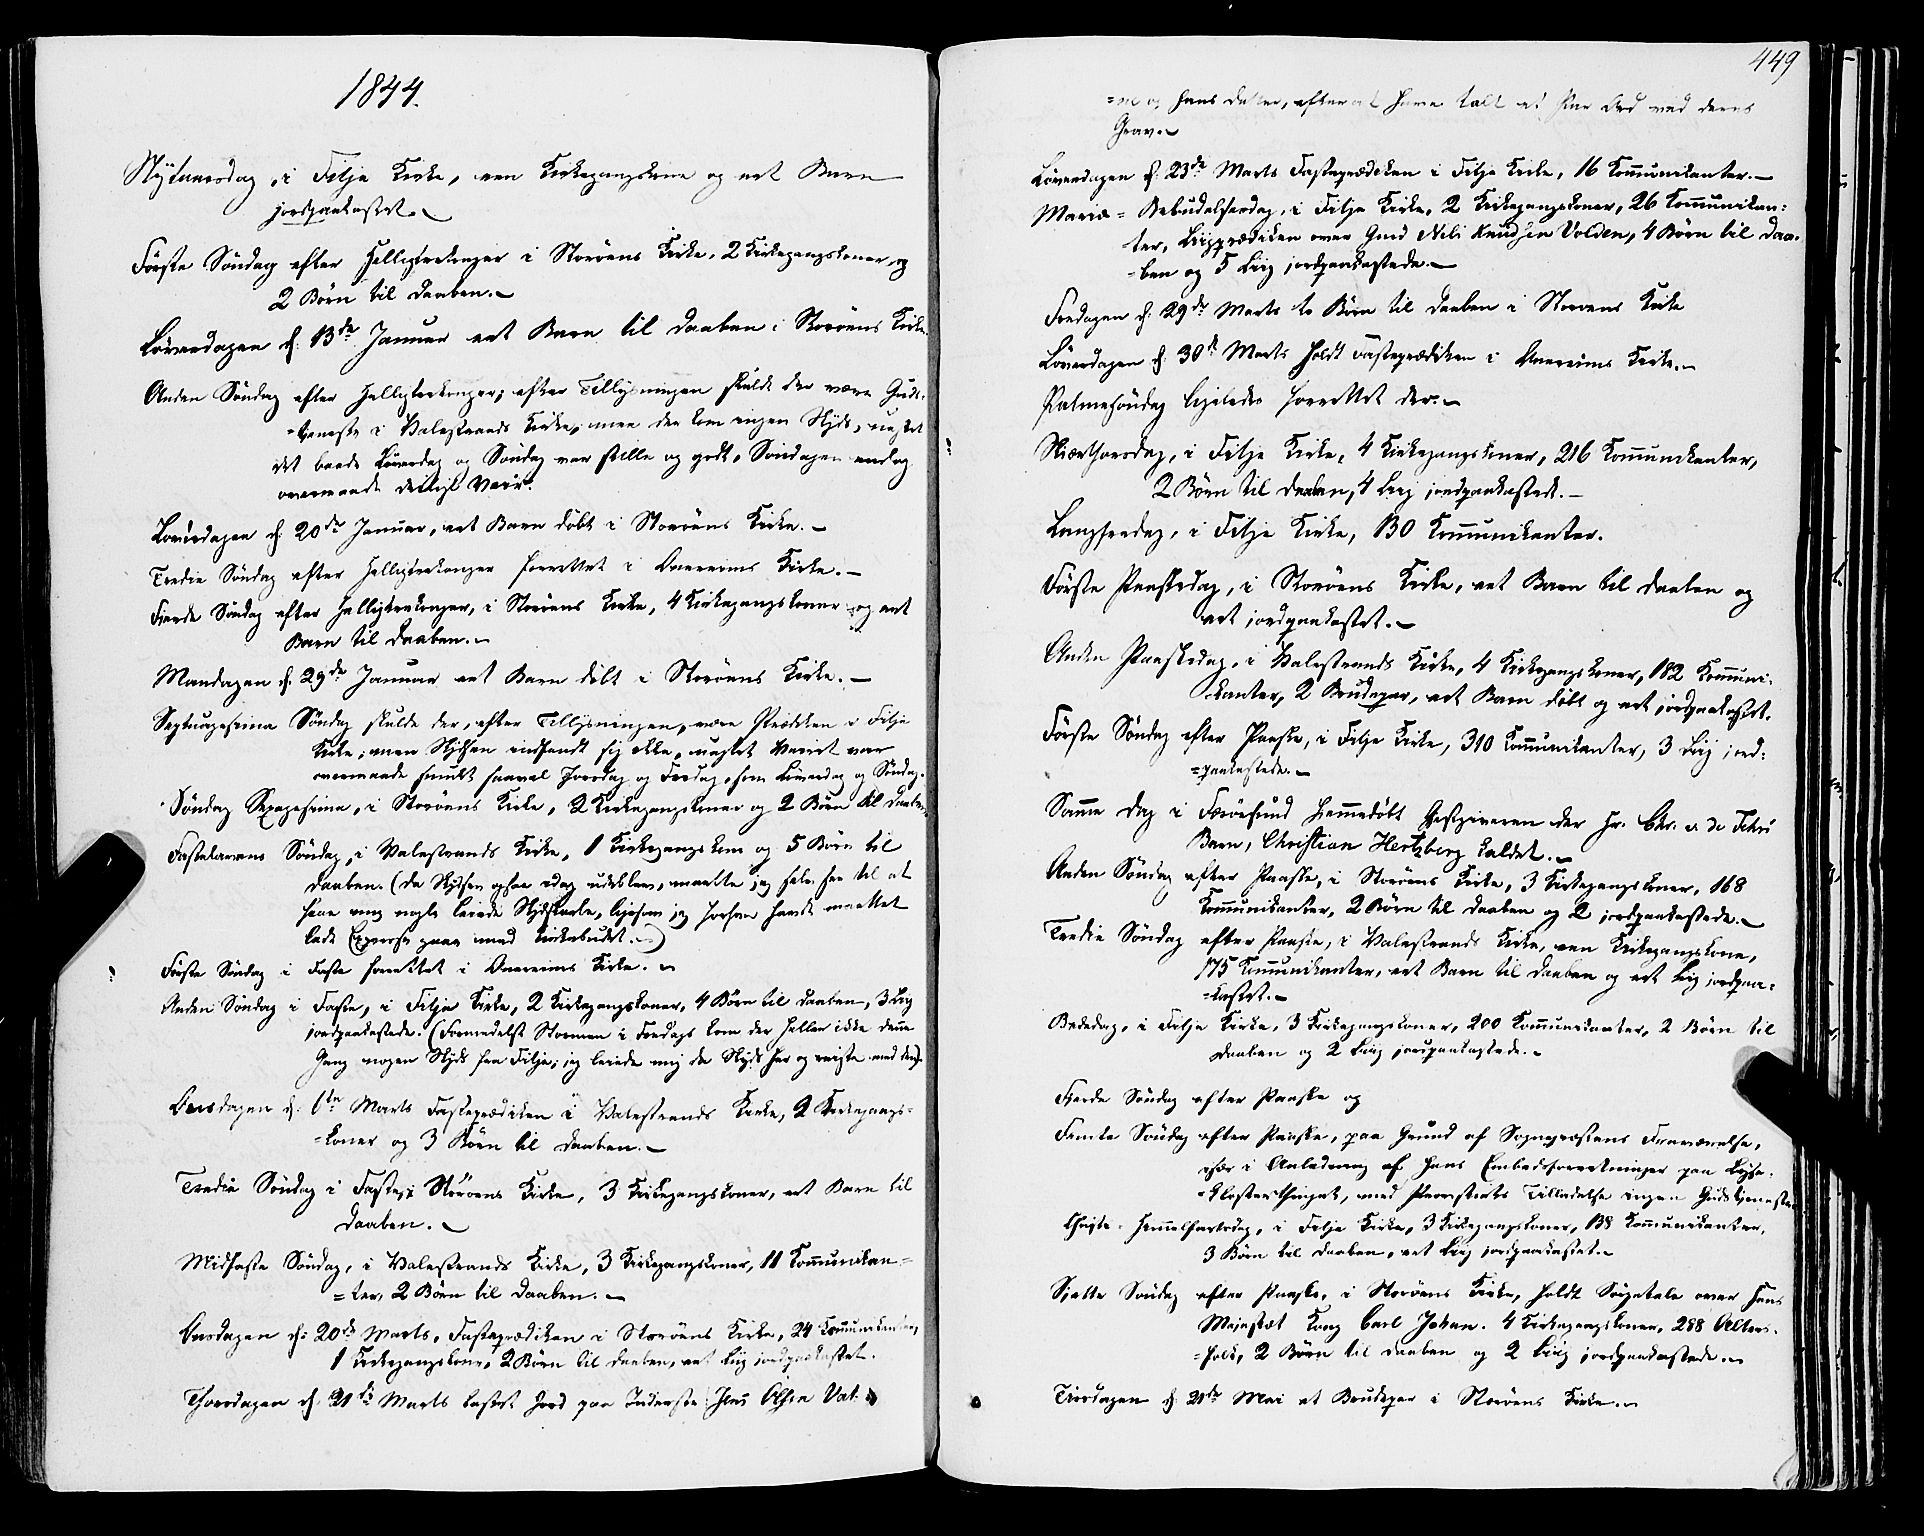 1844.
Nytaarsdag, i Fitje Kirke, een Kirkegangskone og eet Barn
jordpaakastet.
Første Søndag efter Helligtrekonger i Storøens Kirke, 2 Kirkegangskoner og
2 Børn til Daaben.
Løverdagen d. 13de Januar eet Barn til Daaben i Storøens Kirke.
Anden Søndag efter Helligtrekonger; efter Tillysningen skulde der være Guds-
=tjeneste i Valestrands Kirke, men der kom ingen Skyds, uagtet
det baade Løverdag og Søndag var stille og godt, Søndagen endog
overmaade deiligt Veir.
Løverdagen d. 20de Januar, eet Barn døbt i Storøens Kirke.
Tredie Søndag efter Helligtrekonger forrettet i Kirke.
Fjerde Søndag efter Helligtrekonger, i Storøens Kirke, 4 Kirkegangskoner og eet
Barn til Daaben.
Mandagen d. 29de Januar eet Barn døbt i Storøens Kirke.
Septuagesima Søndag skulde der, efter Tillysningen, være Prædiken i Fitje
Kirke; men Skydsen indfandt sig ikke, uagtet Veiret var
overmaade smukt saavel Torsdag og Fredag, som Løverdag og Søndag.
Søndag Sexagesima, i Storøens Kirke, 2 Kirkegangskoner og 2 Børn til Daaben.
Fastelavns Søndag, i Valestrands Kirke, 1 Kirkegangskone og 5 Børn til
Daaben. (Da Skydsen ogsaa idag udeblev, maatte jeg selv see til at
faae mig nogle leiede Skydskarle, ligesom jeg forhen havde maattet
lade Expresse gaae med Kirkebudet.)
Første Søndag i Faste forrettet i Kirke.
Anden Søndag i Faste, i Fitje Kirke, 2 Kirkegangskoner, 4 Børn til Daaben, 3 Liig
jordpaakastede. (Formedelst Stormen i Fredags kom der heller ikke denne
Gang nogen Skyds fra Fitje; jeg leiede mig da Skyds her og reiste med den).
Onsdagen d. 6te Marts Fasteprædiken i Valestrands Kirke, 2 Kirkegangs-
=koner og 3 Børn til Daaben.
Tredie Søndag i Faste, i Storøens Kirke, 3 Kirkegangskoner, eet Barn til
Daaben.
Midfaste Søndag, i Valestrands Kirke, 3 Kirkegangskoner, 11 Kommunikan-
=ter, 2 Børn til Daaben.
Onsdagen d. 20de Marts, Fasteprædiken i Storøens Kirke, 24 Kommunikanter,
1 Kirkegangskone, 2 Børn til Daaben, eet Liig jordpaakastet.
Thorsdagen d. 21de Marts kastet Jord paa Inderste Olsen
449
og hans Datter, efter at have talt et Par Ord ved deres
Grav.
Løverdagen d. 23de Marts Fasteprædiken i Fitje Kirke, 16 Kommunikanter.
Mariæ- Bebudelsesdag, i Fitje Kirke, 2 Kirkegangskoner, 26 Kommunikan-
ter, Liigprædiken over Gmd Nils Knudsen Volden, 4 Børn til Daa-
-ben og 5 Liig jordpaakastede.
Fredagen d. 29de Marts to Børn til Daaben i Storøens Kirke
Løverdagen d. 30te Marts holdt Fasteprædiken i Kirke.
Palmesøndag ligeledes forrettet der.
Skiærthorsdag, i Fitje Kirke, 4 Kirkegangskoner, 216 Kommunikanter,
2 Børn til Daaben, 4 Liig jordpaakastede.
Langfredag, i Fitje Kirke, 130 Kommunikanter.
Første Paaskedag, i Storøens Kirke, eet Barn til Daaben og
eet jordpaakastet.
Anden Paaskedag, i Valestrands Kirke, 4 Kirkegangskoner, 182 Kommuni-
kanter, 2 Brudepar, eet Barn døbt og eet jordpaakastet.
Første Søndag efter Paaske, i Fitje Kirke, 310 Kommunikanter, 3 Liig jord-
=paakastede.
Samme Dag i Færøesund hjemmedøbt Gjestgiveren der Hr. Chr.
Barn, Christian Hertzberg kaldet.
Anden Søndag efter Paaske, i Storøens Kirke, 3 Kirkegangskoner, 168
Kommunikanter, 2 Børn til Daaben og 2 jordpaakastede.
Tredie Søndag efter Paaske, i Valestrands Kirke, een Kirkegangskone,
175 Kommunikanter, eet Barn til Daaben og eet Liig jordpaa-
=kastet.
Bededag, i Fitje Kirke, 3 Kirkegangskoner, 200 Kommunikanter, 2 Børn til
Daaben og 2 Liig jordpaakastede.
Fjerde Søndag efter Paaske og
Femte Søndag efter Paaske, paa Grund af Sognepræstens Fraværelse,
i Anledning af hans Embedsforretninger paa Lyse-
=klosterthinget, med Provstens Tilladelse ingen Gudstjeneste.
Christi- Himmelfartsdag, i Fitje Kirke, 3 Kirkegangskoner, 138 Kommunikanter,
3 Børn til Daaben, eet Liig jordpaakastet.
Sjette Søndag efter Paaske, i Storøens Kirke, holdt Sørgetale over Hans
Majestæt Kong Carl Johan. 4 Kirkegangskoner, 288 Alters-
=folk, 2 Børn til Daaben og 2 Liig jordpaakastede.
Tirsdagen d. 21de Mai et Brudepar i Storøens Kirke.